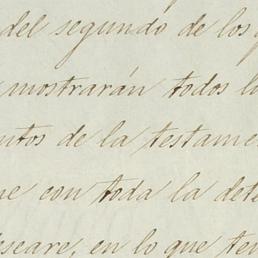 del segundo de los
mostrarán todos
de la testamen
con toda la dete
en lo que ten